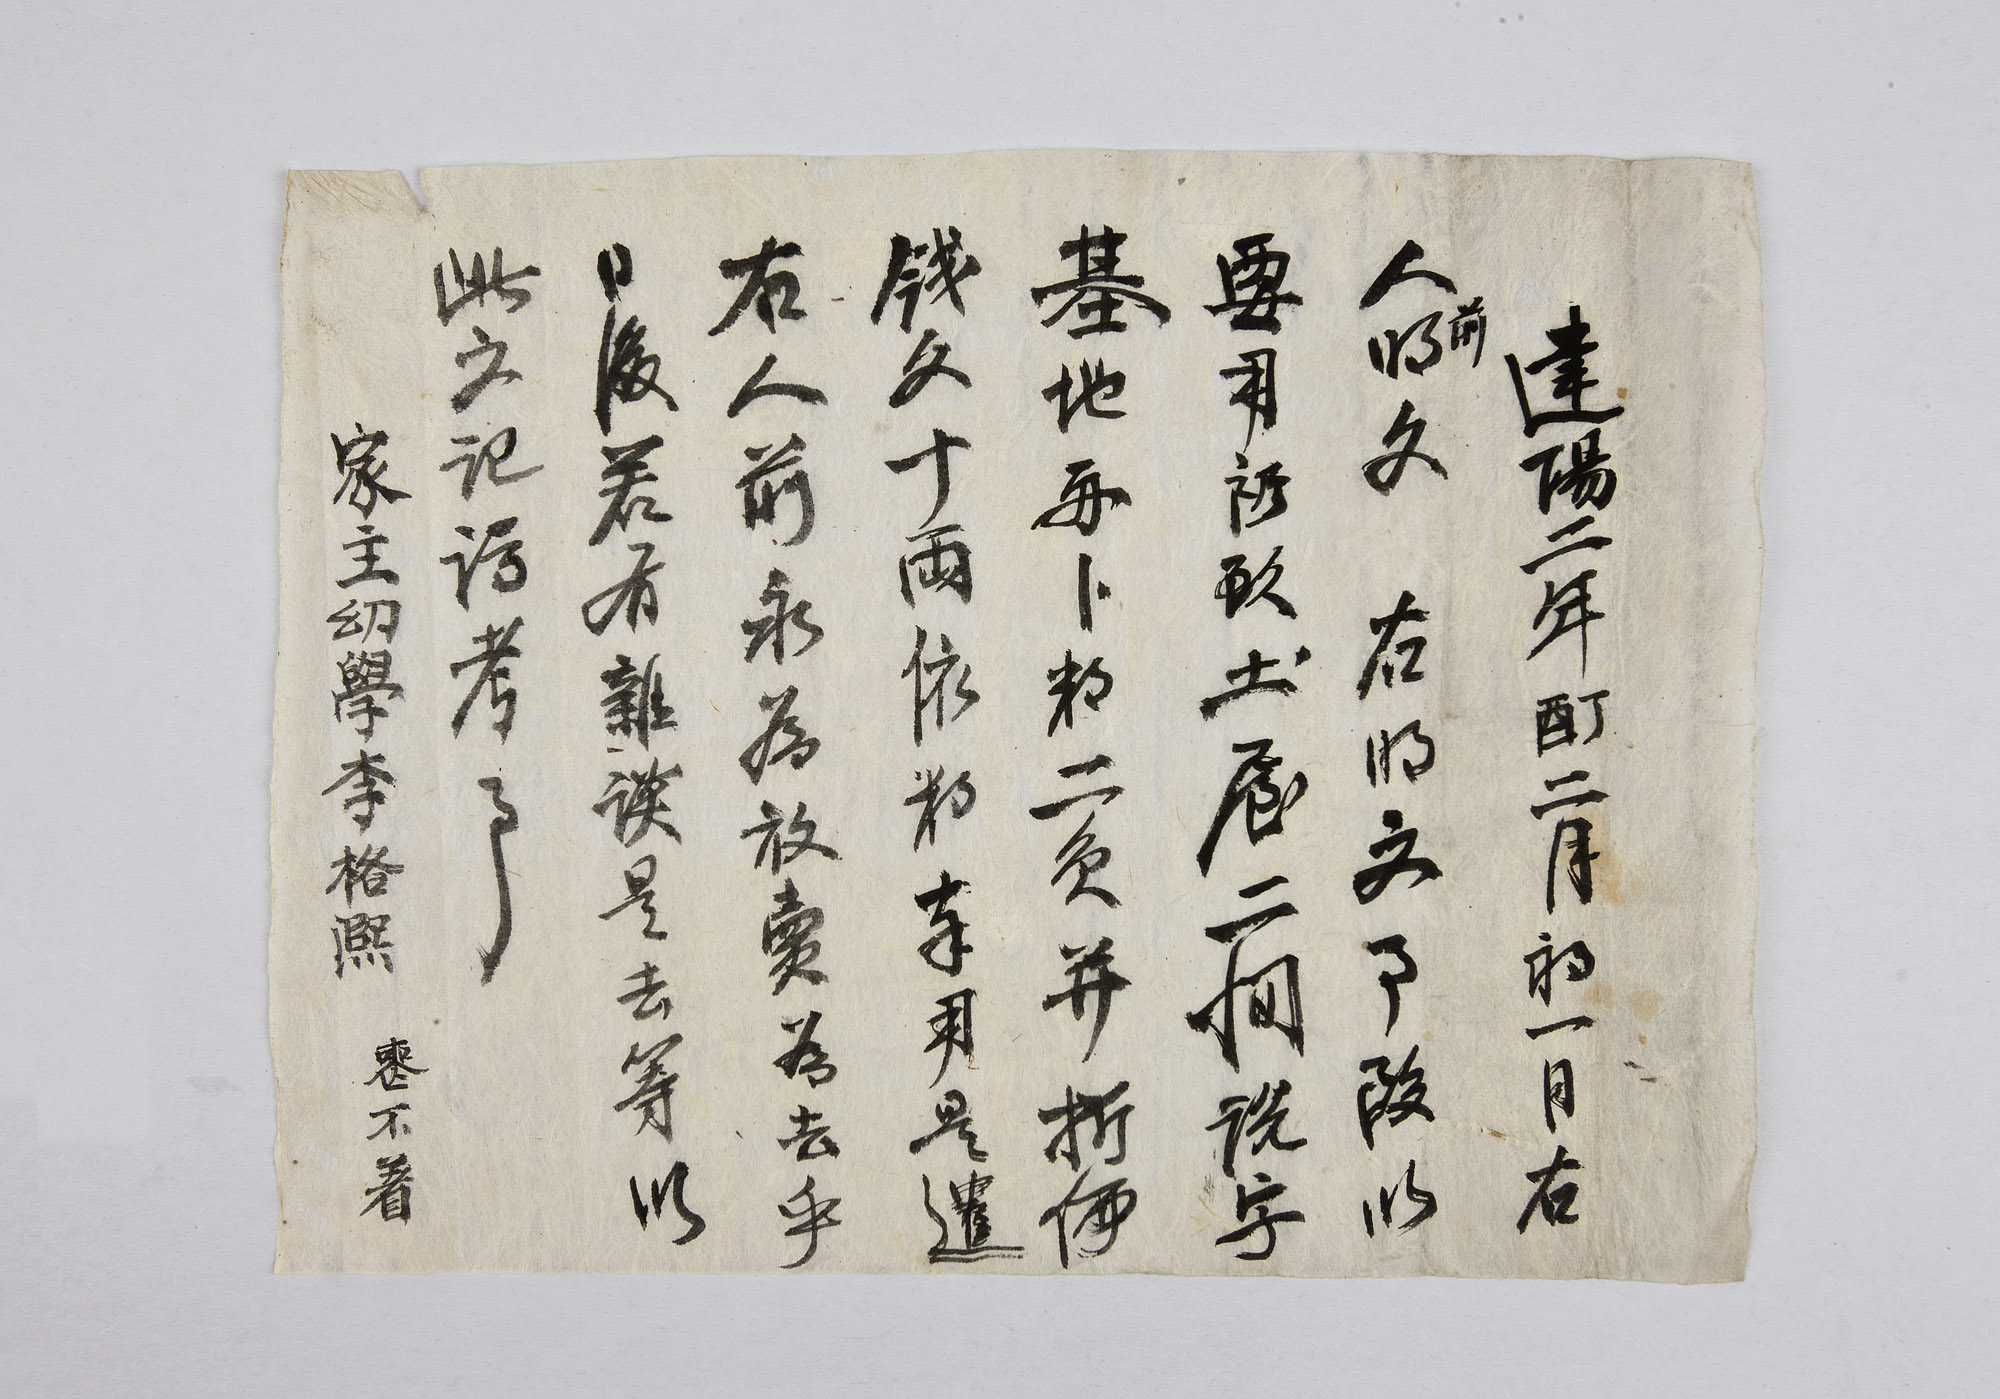 建陽二年丁酉二月初一日右
人前明文 右明文事段以
要用所致土屋二間說字
基地再卜數二負幷折価
錢文十兩依數奉用是遣
右人前永爲放賣爲去乎
日後若有雜談是去等以
此文記誥考事
家主幼學李格熙 喪不着